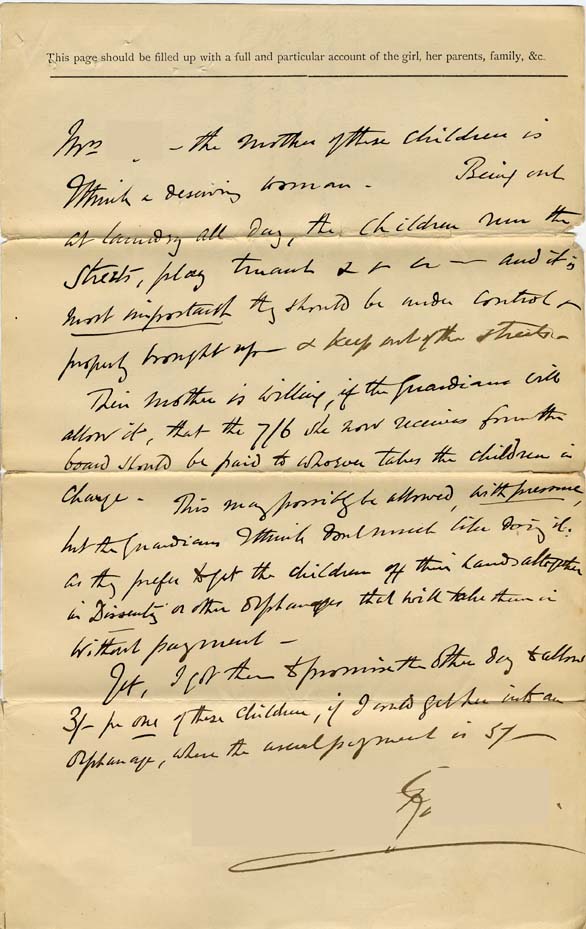 This page should be filled up with a full and particular account of the girl, her parents, family, &c.
Mrs — the mother of these children is
I think a deserving woman. Being out
at laundry all day, the children run the
streets, play truant & — and it is
most important they should be under control &
properly brought up — & keep out of the streets —
Their mother is willing, if the Guardians will
allow it, that the 7/6 she now receives from the
board should be paid to whoever takes the children in
charge — This may possibly be allowed, with pressure,
but the Guardians I think don't much like doing it:
as they prefer to get the children off their hands altogether
in Dissenting or other Orphanages that will take them in
without payment —
Yet, I got them to promise the other day to allow
3/- for one of these children, if I could get her into an
Orphanage, where the usual payment is 5/—